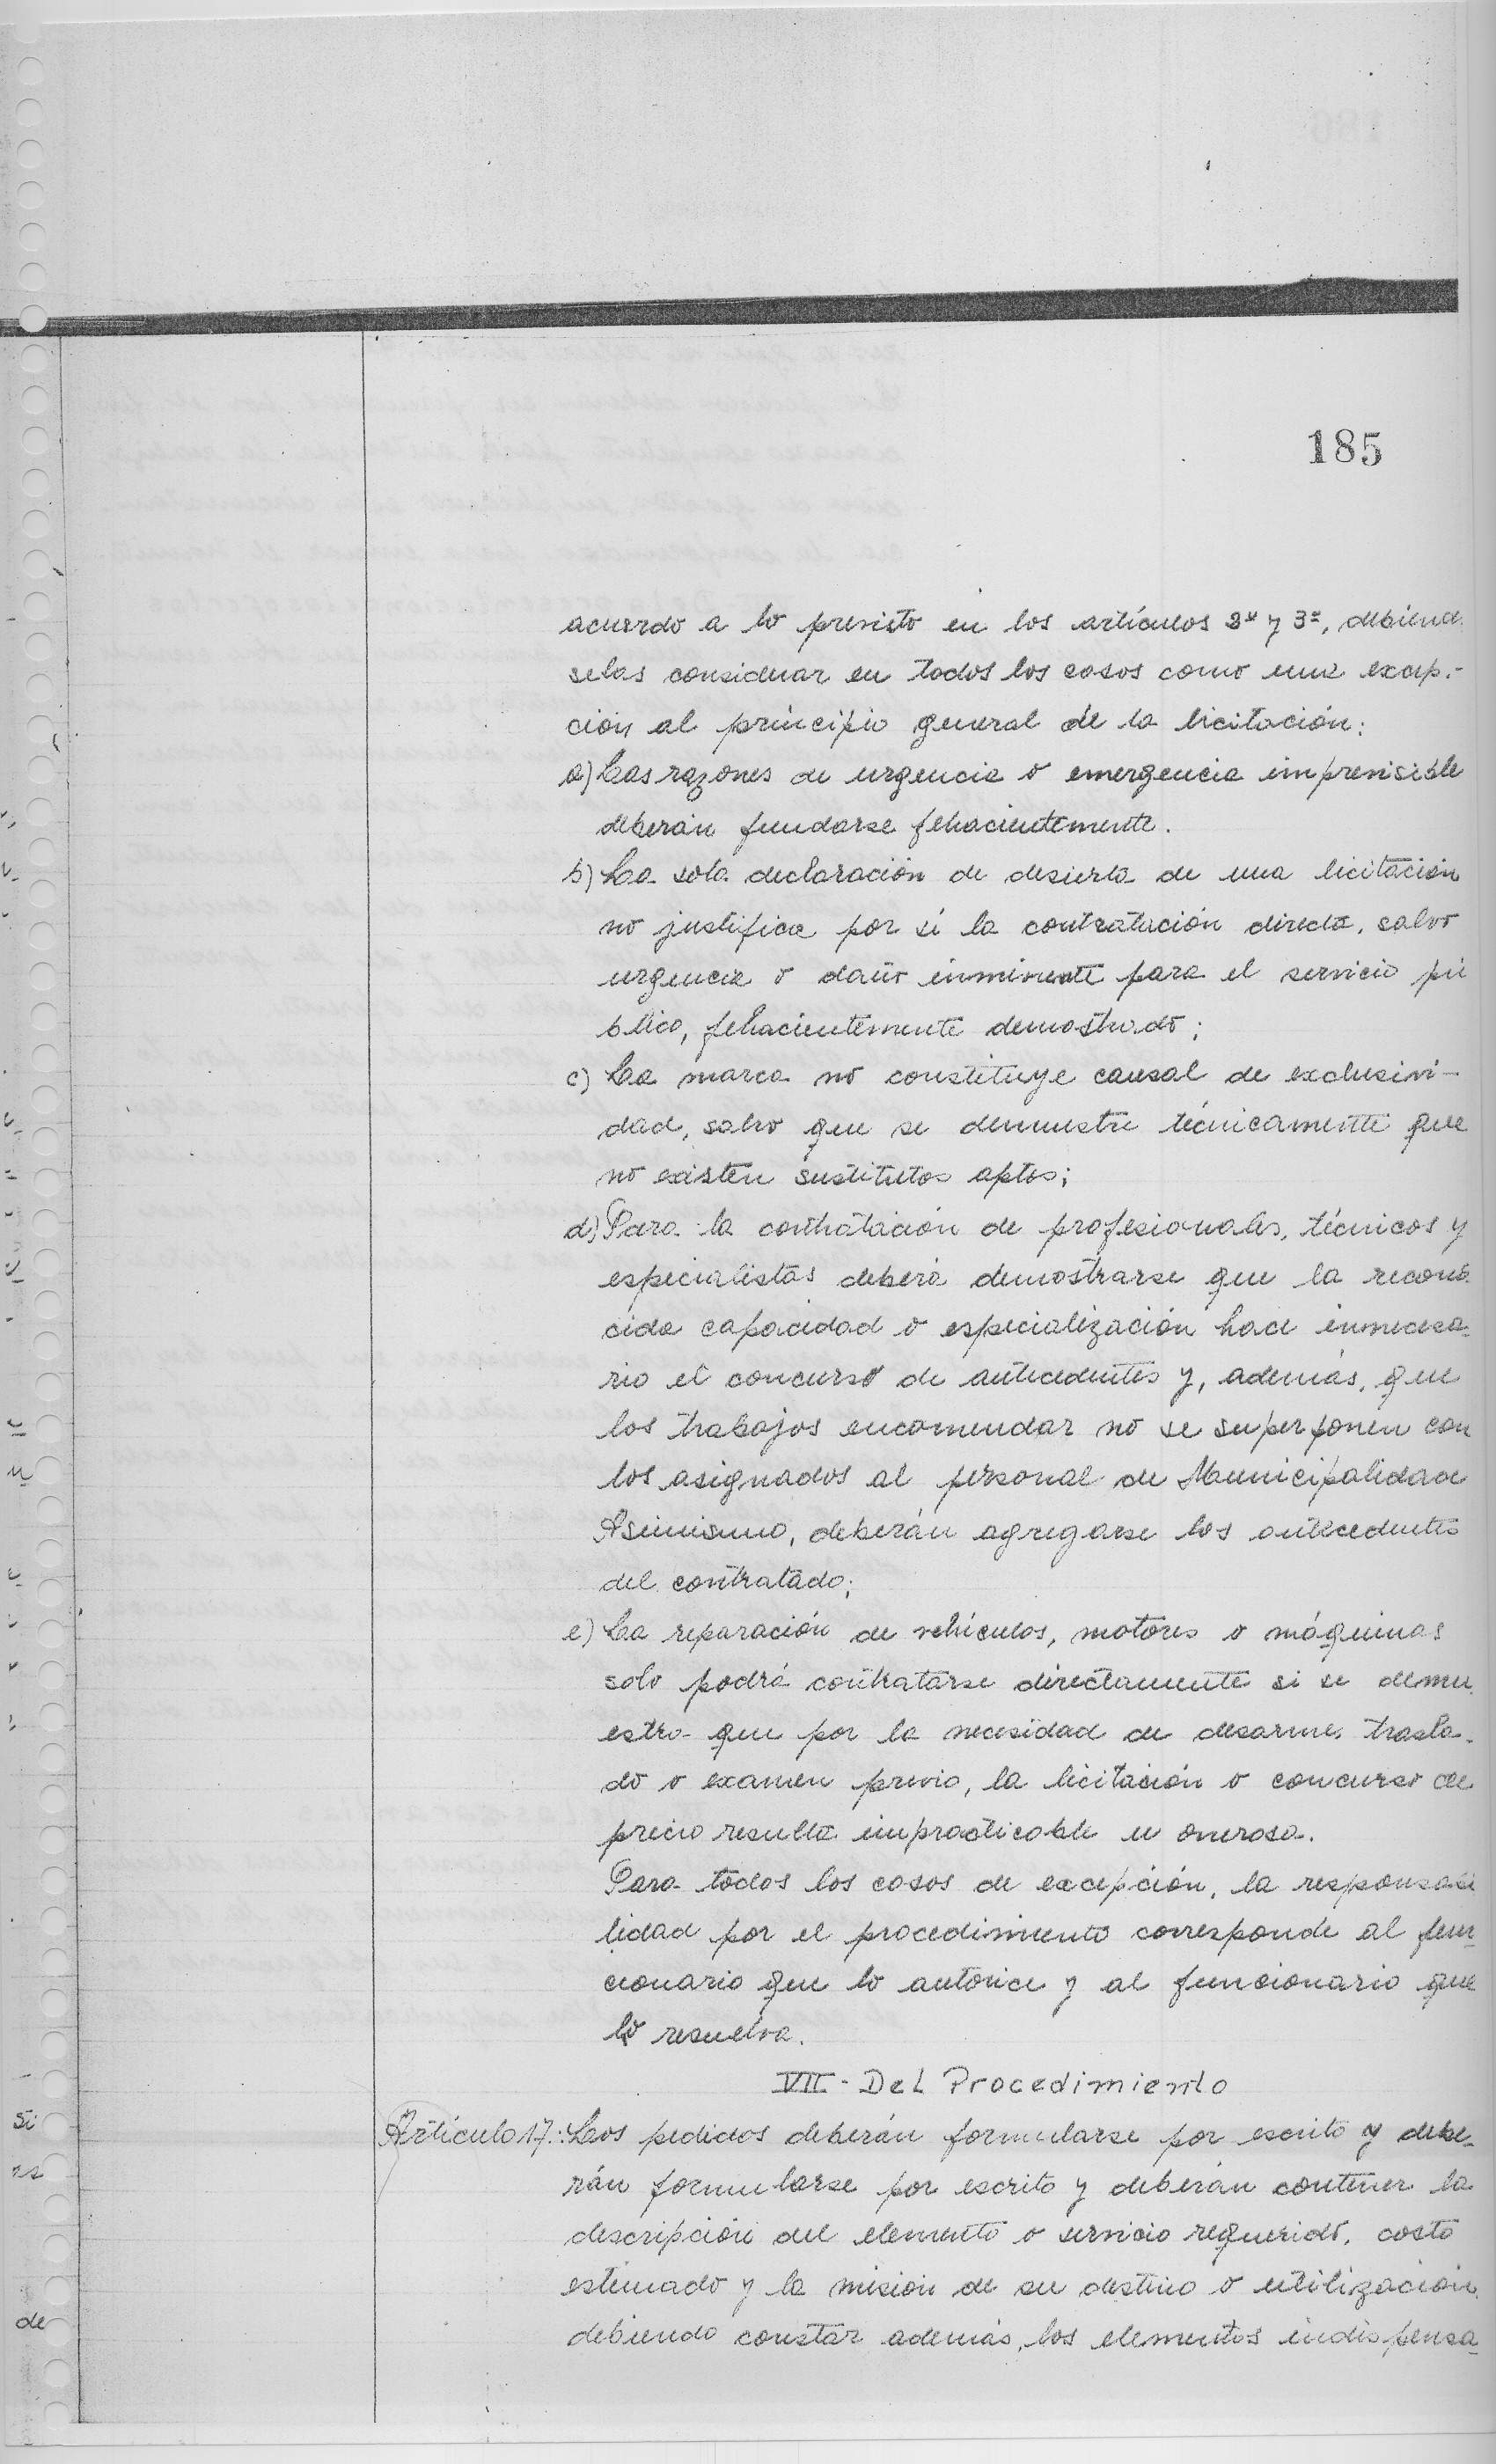 185
acuerdo a lo previsto en los artículos 2º y 3º, debiend
selas considerar en todos los casos como una excep.-
ción al principio general de la licitación:
a) Las razones de urgencia o emergencia imprevisible
deberán fundarse fehacientemente.
b) La sola declaración de desierta de una licitación
no justifica por sí la contratación directa, salvo
urgencia o daño inminente para el servicio pú
blico, fehacientemente demostrado;
c) La marca no constituye causal de exclusivi-
dad, salvo que se demuestre técnicamente que
no existen sustitutos aptos;
d) Para la contratación de profesionales, técnicos y
especialistas deberá demostrarse que la recono
cida capacidad o especialización hace innecesa-
rio el concurso de antecedentes y, además, que
los trabajos encomendar no se superponen con
los asignados al personal de Municipalidad
Asimismo, deberán agregarse los antecedentes
del contratado;
e) La reparación de vehículos, motores o máquinas
solo podrá contratarse directamente si se demu
estra que por la necesidad de desarme, trasla-
do o examen previo, la licitación o concurso de
precio resulta impracticable u onerosa.
Para todos los casos de excepción, la responsabi
lidad por el procedimiento corresponde al fun-
cionario que lo autorice y al funcionario que
lo resuelva.
VII - Del Procedimiento
Artículo 17.: Los pedidos deberán formularse por escrito y debe-
rán formularse por escrito y deberán contener la
descripción del elemento o servicio requerido, costo
estimado y la misión de su destino o utilización
debiendo constar además, los elementos indispensa-
si
de